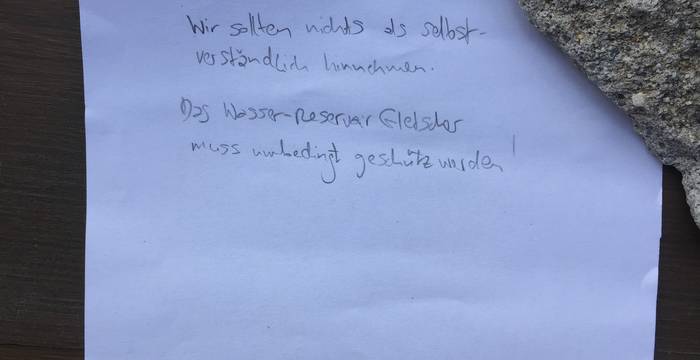 Wir sollten nichts als selbst-
verständlich hinnehmen.
Das Wasser-Reservoir Gletscher
muss unbedingt geschützt werden!